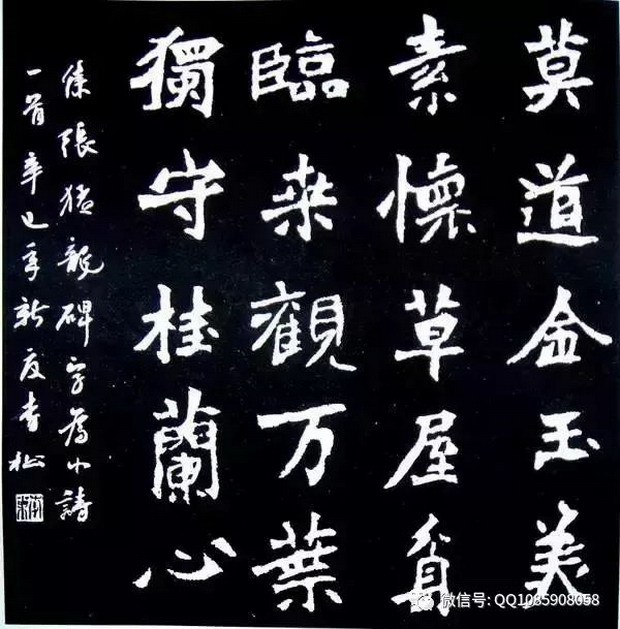 莫道金玉美
素懷草屋貧
臨来觀万葉
獨守桂蘭心
集張猛龍碑字為小詩
一首辛巳年新
微信号: QQ1085908058